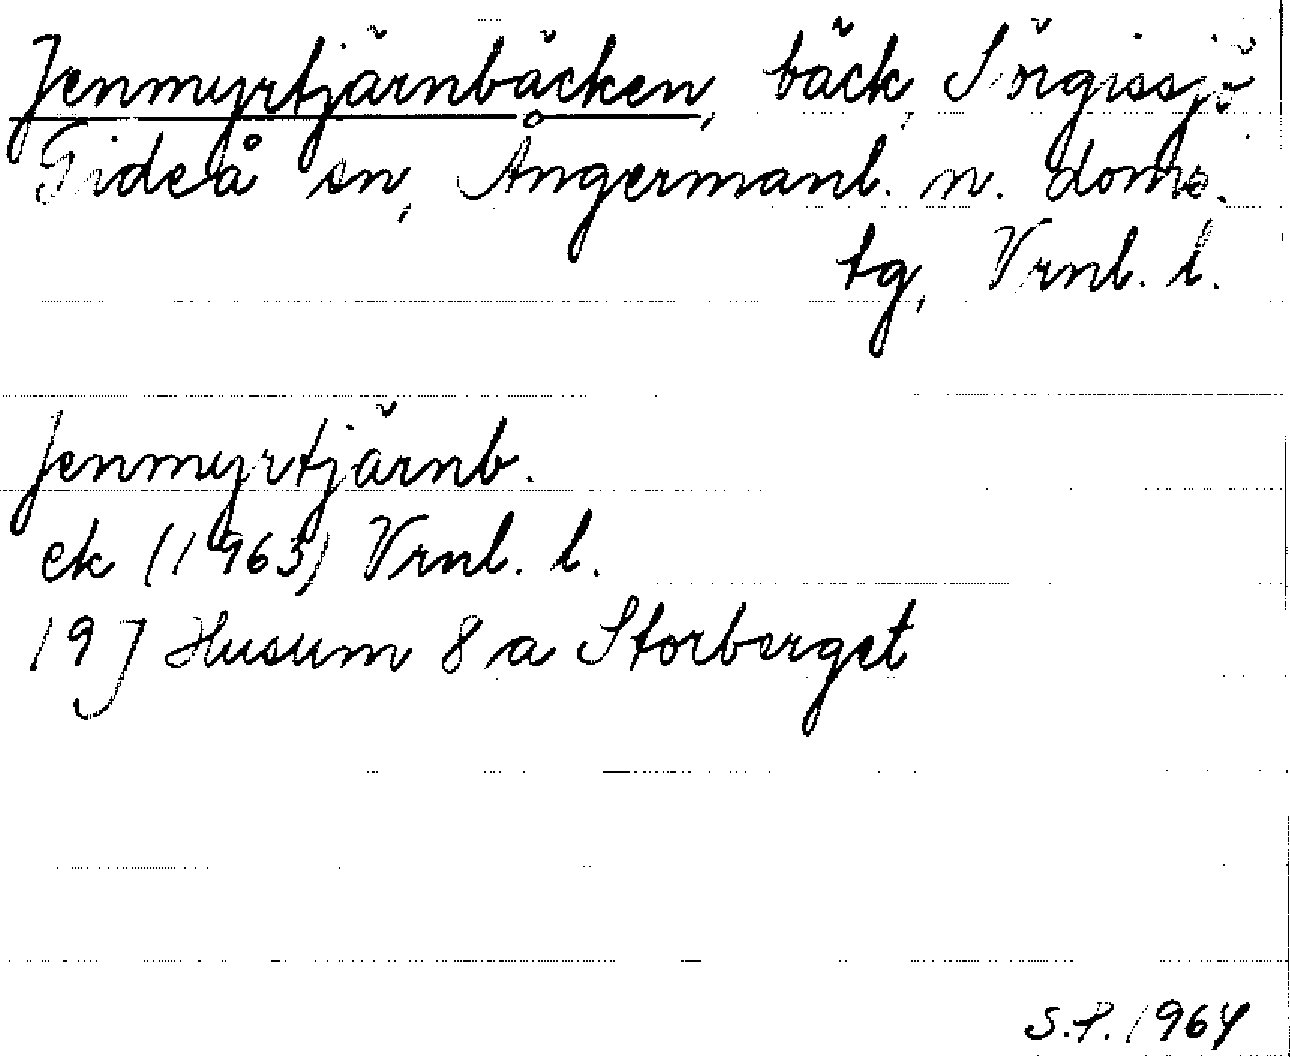 Jenmyrtjärnbäcken, bäck, Sörgissjö
Gideå sn, Ångermanl. n. doms.
tg, Vrnl. l.
Jenmyrtjärnb.
ek (1963) Vrnl. l.
19J Husum 8 a Storberget
S.P. 1964